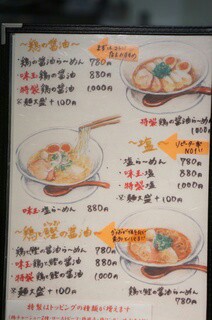 ～鶏の醤油～
鶏の醤油らーめん 780円
味玉鶏の醤油 880円
特製鶏の醤油 1,000円
※麺大盛+100円
特製鶏の醤油 1,000円
～塩～
リピーター率
NO1!!
塩らーめん 780円
味玉塩 880円
特製塩 1,000円
※麺大盛+100円
味玉塩らーめん 880円
～鶏と鰹の醤油～
鶏と鰹の醤油 780円
味玉鶏と鰹の醤油 880円
特製鶏と鰹の醤油 1,000円
※麺大盛+100円
鶏と鰹の醤油
780円
特製はトッピングの種類が増えます